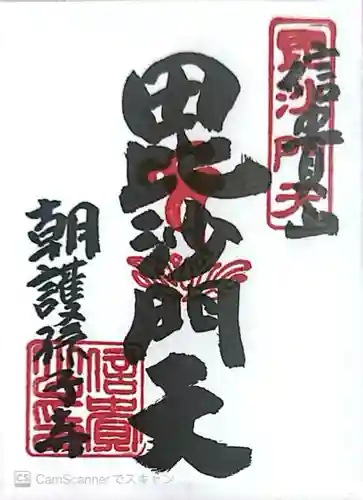 信貴山
毘沙門天
朝護孫子寺
毘沙門天
信貴
CS CamScannerでスキャン